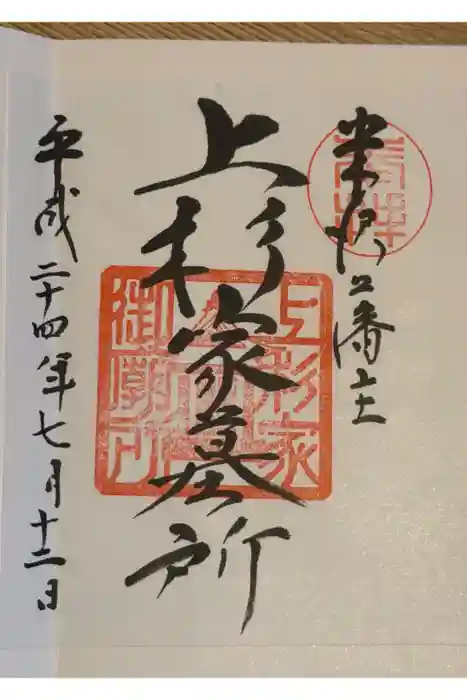 米沢藩主
上杉家墓所
上杉家
御廟所
平成二十四年七月十三日